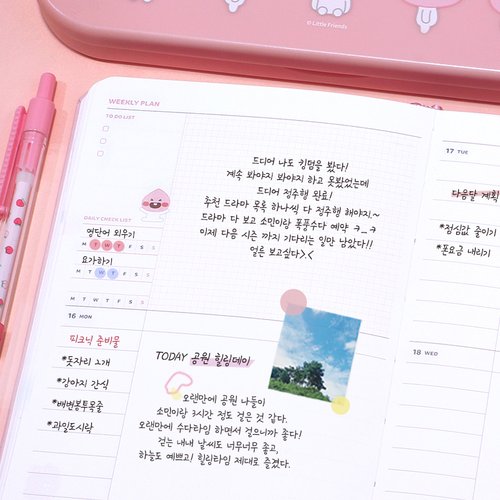 © Little Friends
WEEKLY PLAN
TO DO LIST
드디어 나도 킹덤을 봤다!
계속 봐야지 봐야지 하고 못봤었는데
드디어 정주행 완료!
추천 드라마 목록 하나씩 다 정주행 해야지.~
드라마 다 보고 소민이랑 폭풍수다 예약 ㅋ_ㅋ
이제 다음 시즌 까지 기다리는 일만 남았다!!
얼른 보고싶다>.<
DAILY CHECK LIST
영단어 외우기
M T W T F S S
요가하기
M T W T F S S
M T W T F S S
16 MON
피크닉 준비물
*돗자리 2개
*강아지 간식
*배변봉투목줄
*과일도시락
TODAY 공원 힐링데이
오랜만에 공원 나들이
소민이랑 3시간 정도 걸은 것 같다.
오랜만에 수다타임 하면서 걸으니까 좋다!
걷는 내내 날씨도 너무너무 좋고,
하늘도 예쁘고! 힐링타임 제대로 즐겼다.
17 TUE
다음달 계획
*점심값 줄이기
*폰요금 내리기
18 WED